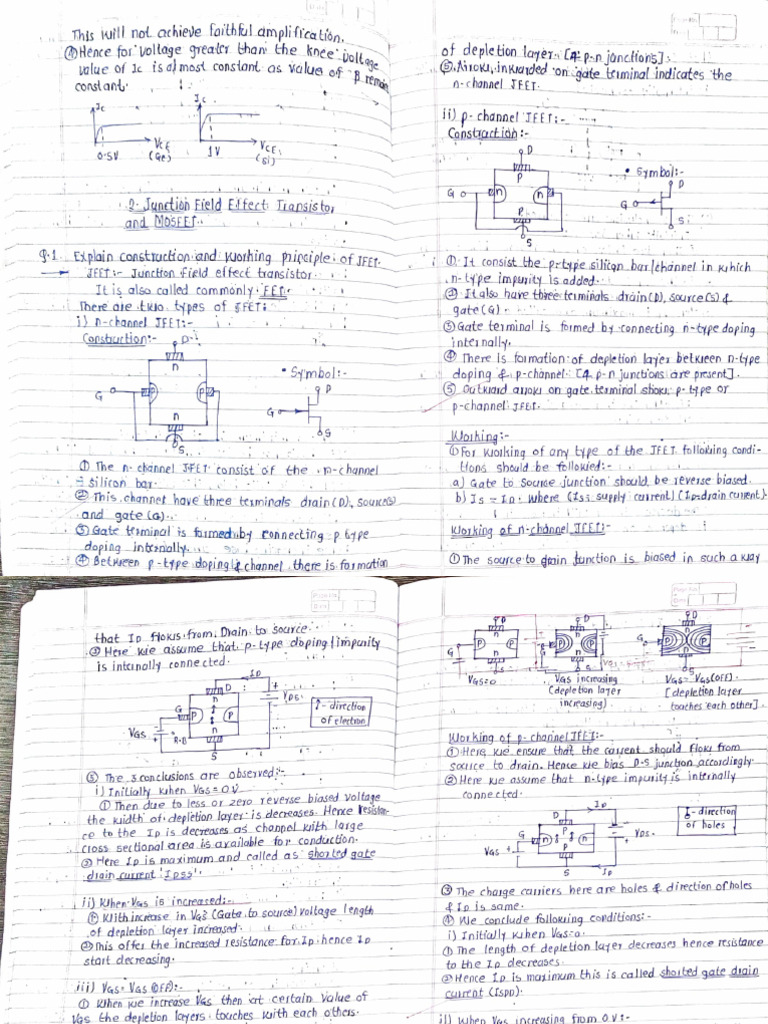 This will not achieve faithful amplification.
④ Hence for voltage greater than the knee voltage
value of Ic is almost constant as value of β remain
constant.
Ic
Ic
VCE
VCE
0.5V
(Ge)
1V
(Si)
2. Junction Field Effect Transistor
and MOSFET.
Q.1 Explain construction and working principle of JFET.
→ JFET:- Junction field effect transistor.
It is also called commonly FET.
There are two types of JFET:
i) n-channel JFET:-
Construction:-
D
n
G
P
P
n
S
• Symbol:-
D
G
S
① The n-channel JFET consist of the n-channel
silicon bar.
② This channel have three terminals drain(D), source(s)
and gate (G).
③ Gate terminal is formed by connecting p type
doping internally.
④ Between p-type doping & channel there is formation
of depletion layer. [4 p-n junctions].
⑤ Arrow inwarded on gate terminal indicates the
n-channel JFET.
ii) p-channel JFET:-
Construction:-
D
P
G
n
n
P
S
• Symbol:-
D
G
S
① It consist the p-type silicon bar/channel in which
n-type impurity is added.
② It also have three terminals drain(D), source(s) &
gate(G).
③ Gate terminal is formed by connecting n-type doping
internally.
④ There is formation of depletion layer between n-type
doping & p-channel [4 p-n junctions are present].
⑤ Outward arrow on gate terminal shows p-type or
p-channel JFET.
Working:-
① For working of any type of the JFET following condi-
tions should be followed:-
a) Gate to source junction should be reverse biased.
b) Is = ID. where (Iss supply current) (ID=drain current).
Working of n-channel JFET:-
① The source to drain junction is biased in such a way
that ID flows from Drain to source.
② Here we assume that p-type doping/impurity
is internally connected.
ID
D
n
G
P
P
n
S
VGS
R.B
VDS
↑- direction
of electron
③ The 3 conclusions are observed:-
i) Initially when VGS = 0V
① Then due to less or zero reverse biased voltage
the width of depletion layer is decreases. Hence resistan-
ce to the ID is decreases as channel with large
cross sectional area is available for conduction.
② Here ID is maximum and called as shorted gate
drain current 'IDSS'
ii) When VGS is increased:-
① With increase in VGS (Gate to source) voltage length
of depletion layer increased.
② This offer the increased resistance for ID. hence ID
start decreasing.
iii) VGS = VGS (OFF):-
① When we increase VGS then at certain value of
VGS the depletion layers touches with each others.
D
n
G
P
P
n
S
VGS=0
D
n
P
P
n
S
VGS increasing
(depletion layer
increasing)
D
n
P
P
n
S
VGS = VGS(OFF)
[depletion layer
touches each other]
Working of p-channel JFET:-
① Here, we ensure that the current should flow from
source to drain. Hence we bias D-S junction accordingly.
② Here we assume that n-type impurity is internally
connected.
ID
D
P
G
n
n
P
S
ID
VGS
VDS
- direction
of holes
③ The charge carriers here are holes & direction of holes
& ID is same.
④ We conclude following conditions:-
i) Initially when VGS=0.
① The length of depletion layer decreases hence resistance
to the ID decreases.
② Hence ID is maximum this is called shorted gate drain
current (ISPD).
ii) When VGS increasing from 0V:-